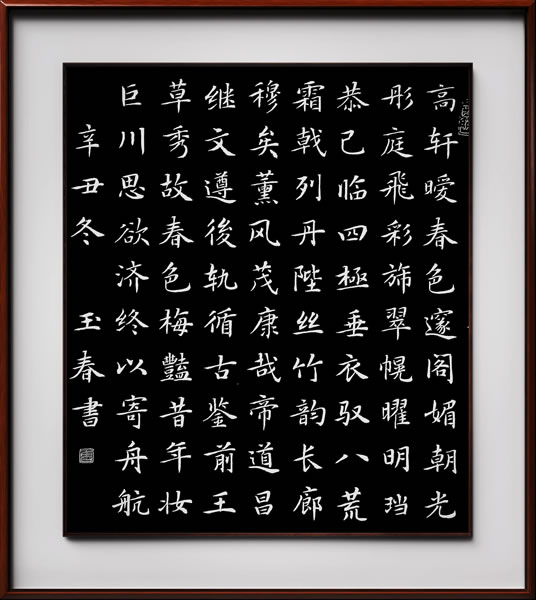 高轩暧春色邃阁媚朝光
彤庭飛彩斾翠幌曜明珰
恭己临四極垂衣驭八荒
霜戟列丹陛丝竹韵长廊
穆矣薰风茂康哉帝道昌
继文遵後轨循古鉴前王
草秀故春色梅豔昔年妆
巨川思欲济终以寄舟航
辛丑冬 玉春書